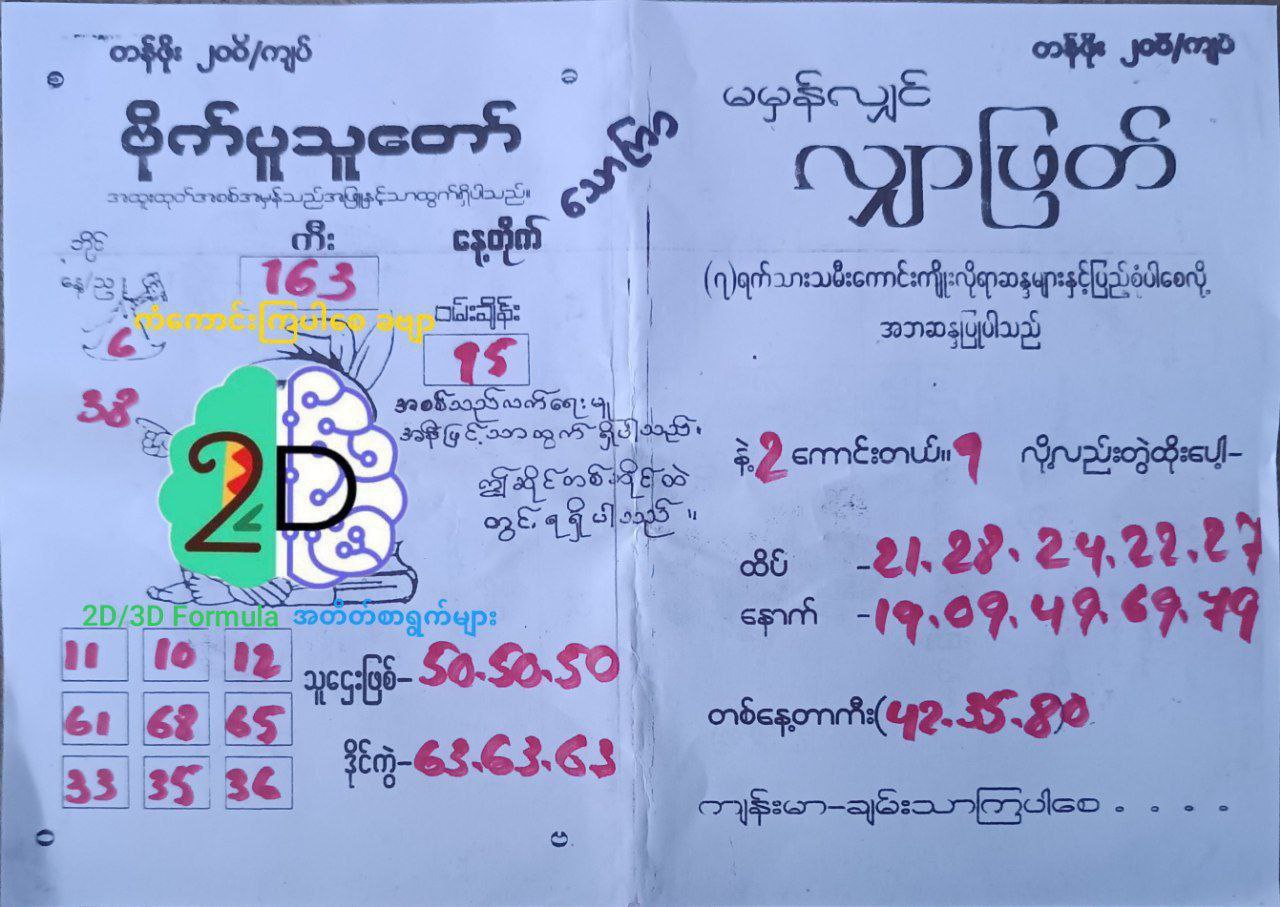 တန်ဖိုး ၂၀၀ိ/ကျပ်
ဗိုက်ပူသူတော်
အထူးထုတ်အစစ်အမှန်သည်အဖြူနှင့်သာထွက်ရှိပါသည်။
ဘိုင်
ကီး
နေ့တိုက်
နေ/ည
163
ကံကောင်းကြပါစေ ခဗျာ
ဝမ်းချိန်း
6
95
38
အစစ်သည်လက်ရေးမူ
အနီဖြင့်သာထွက်ရှိပါသည်။
ဤဆိုင်တစ်ဆိုင်ထဲ
တွင်ရရှိပါသည်။
2D
2D/3D Formula အတိတ်စာရွက်များ
11 10 12
61 68 65
33 35 36
သူဌေးဖြစ်-50.50.50
ဒိုင်ကွဲ-63.63.63
သောကြာ
တန်ဖိုး ၂၀၀ိ/ကျပ်
မမှန်လျှင်
လျှာဖြတ်
(၇)ရက်သားသမီးကောင်းကျိုးလိုရာဆန္ဒများနှင့်ပြည့်စုံပါစေလို့
အဘဆန္ဒပြုပါသည်
နဲ့ 2 ကောင်းတယ်။ 9 လို့လည်းတွဲထိုးပေါ့-
ထိပ် -21.28.24.22.27
နောက် -19.09.49.69.79
တစ်နေ့တာကီး(42.35.80
ကျန်းမာ-ချမ်းသာကြပါစေ . . . .